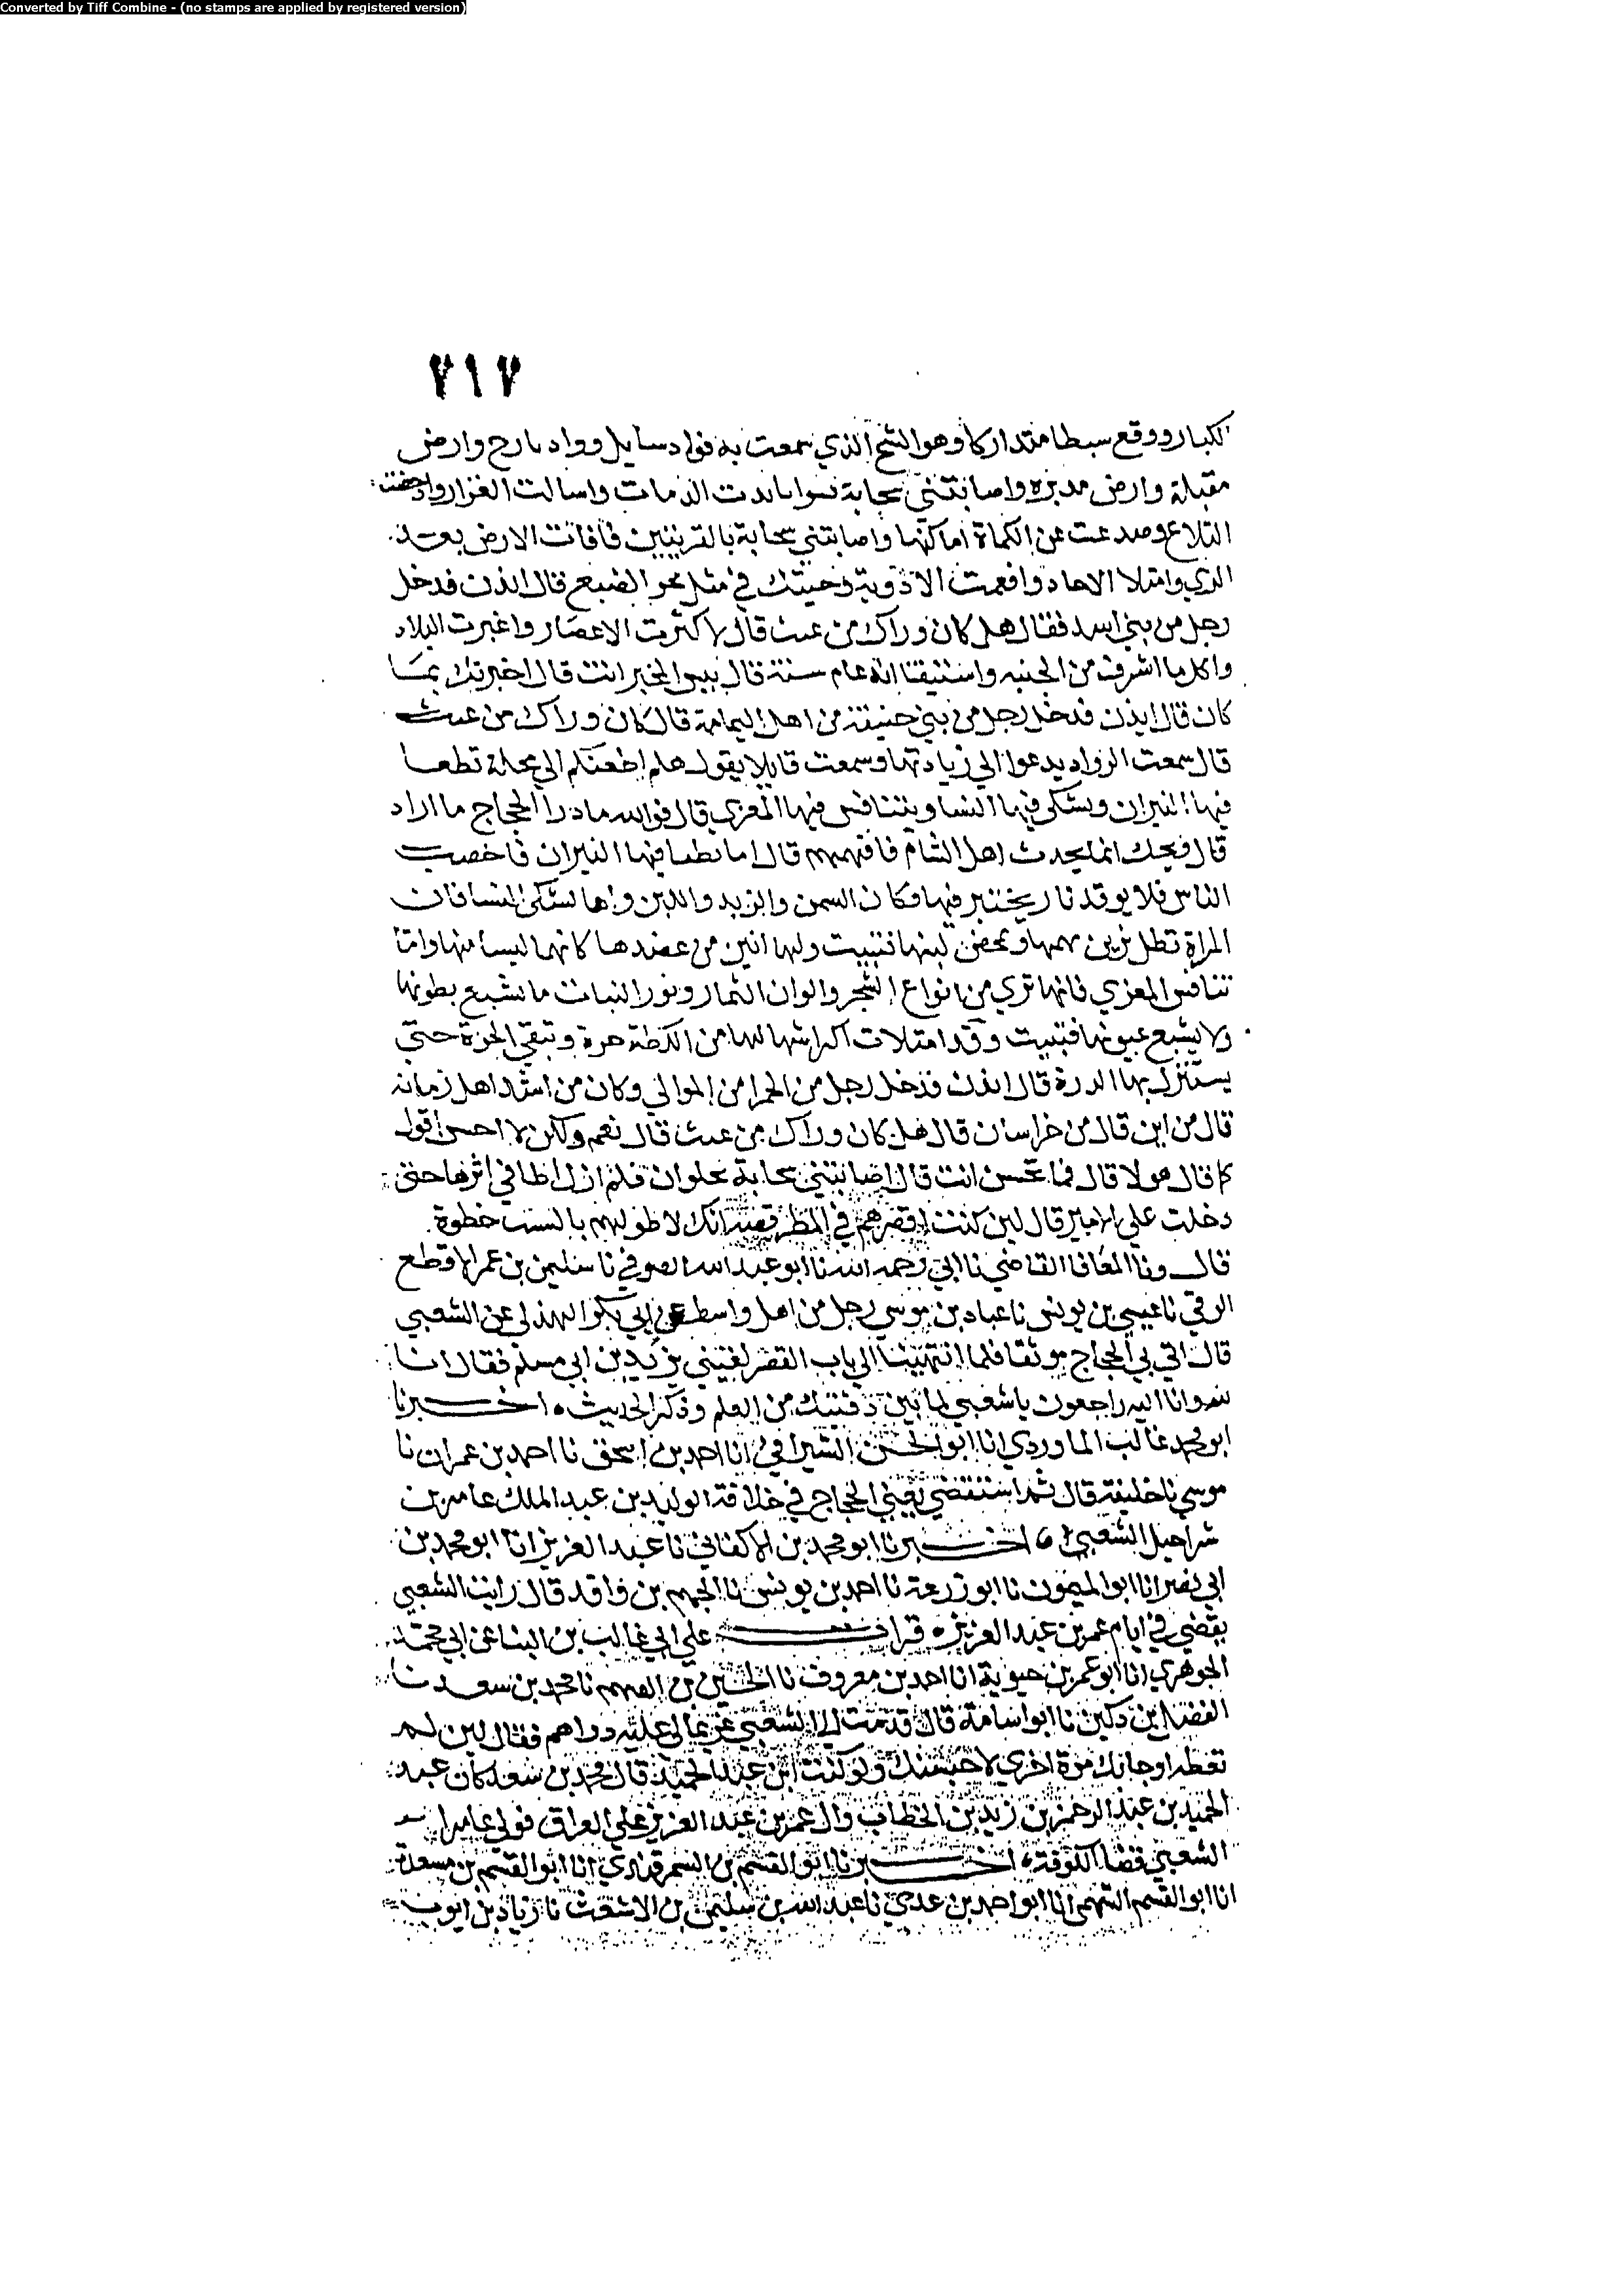 Converted by Tiff Combine - (no stamps are applied by registered version)
٧١٧
الكبار ووقع سبطا متداركا وهو السح الذي سمعت به فواد سايل وواد بارح وارض
مقبلة وارض مدبرة واصابتني سحابة بسوا بابدت الدمات واسالت الغزار وادحضت
التلاع وصدعت عن الكماة اماكنها واصابتني سحابة بالقريتين فافات الارض بعد
الري وامتلا الاخاد وافعمت الاودية وجيتك في مثل مجر الضبع قال ايذن فدخل
رجل من بني اسد فقال هل كان وراك من غيث قال لا كثرت الاعصار واغبرت البلاد
واكل ما اشرف من الجنبه واستيقنا انه عام سنة قال بيس المخبر انت قال اخبرتك بما
كان قال ايذن فدخل رجل من بني حنيفة من اهل اليمامة قال كان وراك من غيث
قال سمعت الرواد يدعوا الى زيادتها وسمعت قايلا يقول هلم اظعنكم الى محلة تطفا
فيها النيران وتشكى فيها النسا ويتنافس فيها المعزي قال فوالله مادرا الحجاج ما اراد
قال ويحك انما تحدث اهل الشام فافهمهم قال اما تطفا فيها النيران فاخصب
الناس فلا يوقد نار يختبز فيها وكان السمن والزبد واللبن واما تشكى النسا فان
المراة تظل تربق بهمها وتمخض لبنها فتبيت ولها انين من عضدها كانهما ليسا منها واما
تنافس المعزي فانها تري من انواع الشجر والوان الثمار ونور النبات ما تشبع بطونها
ولا يشبع عيونها فتبيت وقد امتلات اكراشها لها من الكظة جرة وتبقي الجرة حتى
يستنزل بها الدرة قال ايذن فدخل رجل من الحمرا من الموالي وكان من اشد اهل زمانه
قال من اين قال من خراسان قال هل كان وراك من غيث قال نعم ولكن لا احسن اقول
كما قال هولا قال فما تحسن انت قال اصابتني سحابة بحلوان فلم ازل اطا في اثرها حتى
دخلت على الامير قال لين كنت اقصرهم في المطر قصة انك لاطولهم بالسيف خطوة
قال ونا المعافا القاضي نا ابي رحمه الله نا ابو عبد الله الصوفي نا سليمن بن عمر الاقطع
الرقي نا عيسى بن يونس نا عباد بن موسى رجل من اهل واسط عن ابي بكر الهذلي عن الشعبي
قال اتي بي الحجاج موثقا فلما انتهيت الى باب القصر لقيني يزيد بن ابي مسلم فقال انا
لله وانا اليه راجعون يا شعبي لما بين دفتيك من العلم وذكر الحديث ، اخبرنا
ابو محمد غالب الماوردي انا ابو الحسن السيرافي انا احمد بن اسحق نا احمد بن عمران نا
موسى نا خليفة قال ثم استقضي يعني الحجاج في خلافة الوليد بن عبد الملك عامر بن
شراحيل الشعبي ، اخبرنا ابو محمد بن الاكفاني نا عبد العزيز انا ابو محمد بن
ابي نصر انا ابو الميمون نا ابو زرعة نا احمد بن يونس نا الجهم بن واقد قال رايت الشعبي
يقضي في ايام عمر بن عبد العزيز ، قرات على ابي غالب بن البنا عن ابي محمد
الجوهري انا ابو عمر بن حيوية انا احمد بن معروف نا الحسين بن الفهم نا محمد بن سعد نا
الفضل بن دكين نا ابو اسامة قال قدمت الى الشعبي غريما لي عليه دراهم فقال لين لم
تعطه او جا بك مرة اخري لاحبسنك ولو كنت ابن عبد الحميد قال محمد بن سعد كان عبد
الحميد بن عبد الرحمن بن زيد بن الخطاب وال عمر بن عبد العزيز على العراق فولى عامرا
الشعبي قضا الكوفة ، اخبرنا ابو القسم بن السمرقندي انا ابو القسم بن مسعدة
انا ابو القسم السهمي انا ابو احمد بن عدي نا عبد الله بن سليمن بن الاشعث نا زياد بن ايوب